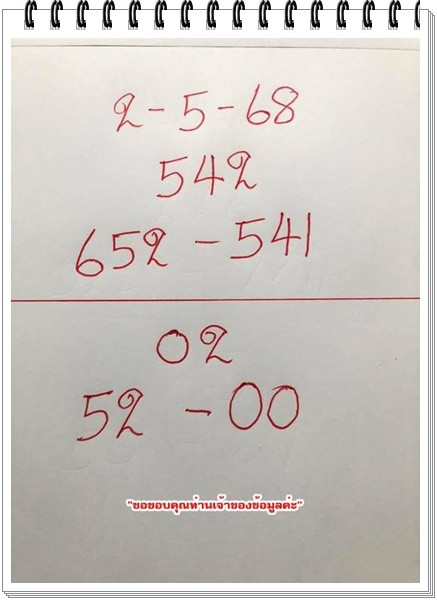 2-5-68
542
652 - 541
02
52 - 00
"ขอขอบคุณท่านเจ้าของข้อมูลค่ะ"